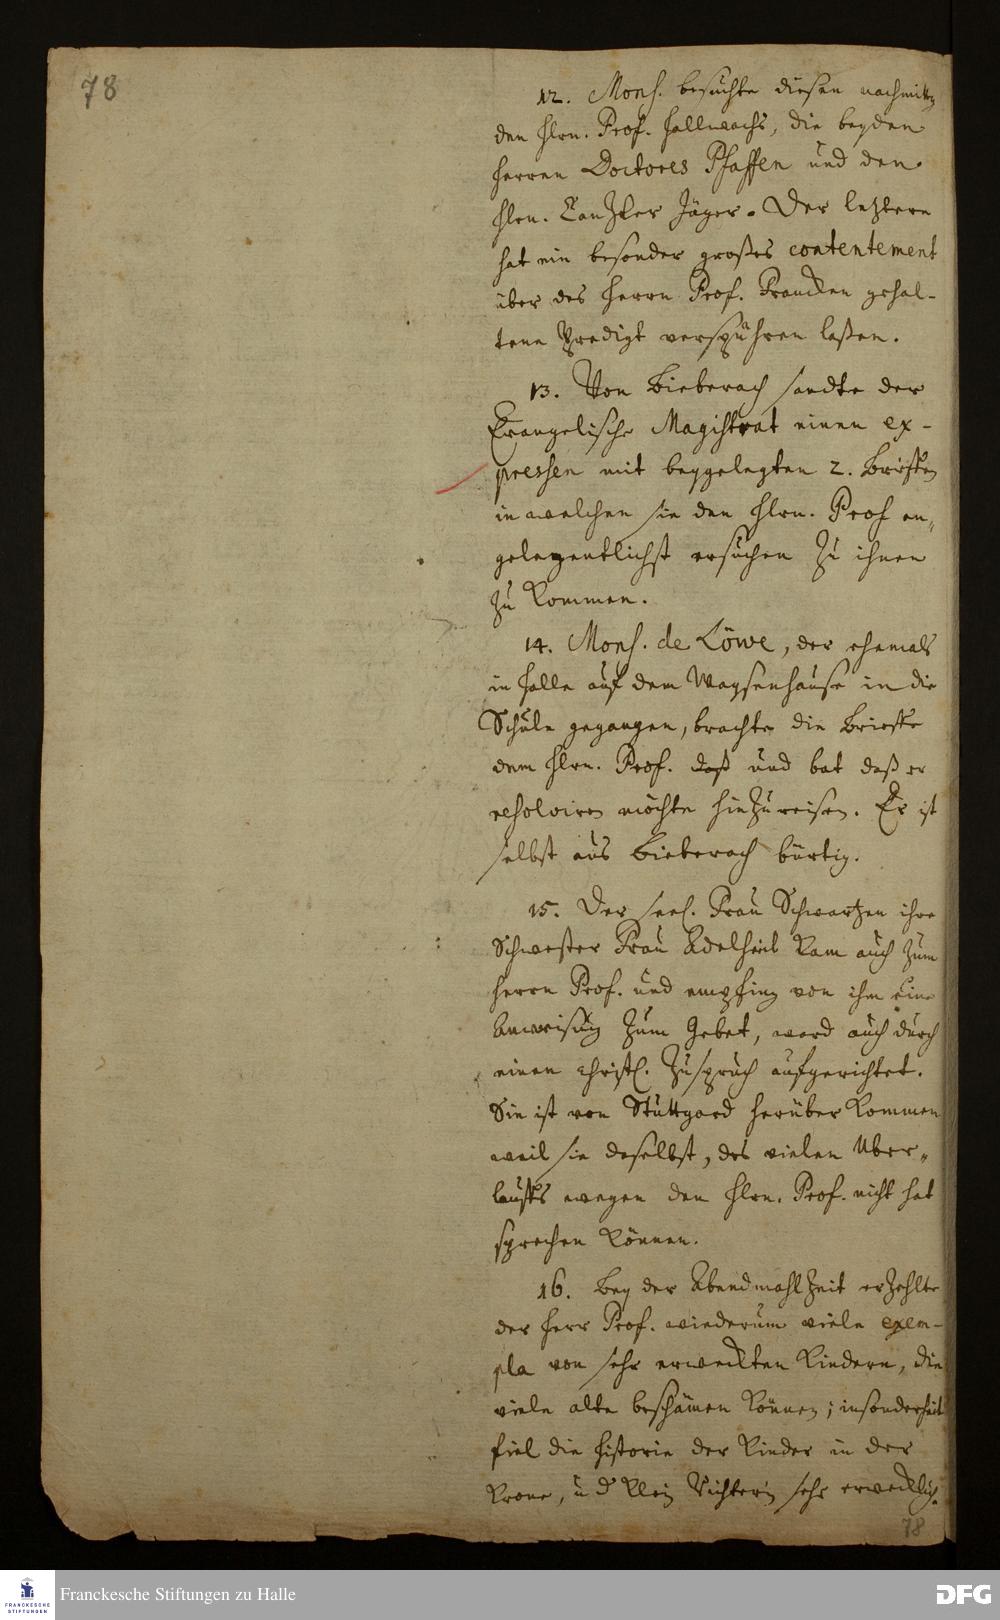 78
12. Mons. besuchte diesen nachmittag
den Hrn. Prof. Hallwachs, die beyden
Herren Doctores Pfaffen und den
Hrn. Cantzler Jäger. Der letztere
hat ein besonder großes contentement
über des Herrn Prof. Francken gehal-
tene Predigt verspühren laßen.
13. Von Bieberach sandte der
Evangelische Magistrat einen ex-
pressen mit beygelegten 2. Brieffen
in welchen sie den Hrn. Prof an-
gelegentlichst ersuchen zu ihnen
zu kommen.
14. Mons. de Löwe, der ehemals
in Halle auf dem Waysenhause in die
Schule gegangen, brachte die Brieffe
dem Hrn. Prof. daß und bat daß er
resolviren möchte hinzureisen. Er ist
selbst aus Bieberach bürtig.
15. Der seel. Frau Schwartzen ihre
Schwester Frau Adelheit kam auch zum
Herrn Prof. und empfing von ihm eine
Anweisung zum Gebet, ward auch durch
einen christl. Zuspruch aufgerichtet.
Sie ist von Stuttgard herüber kommen
weil sie daselbst, des vielen Uber-
lauffs wegen den Hrn. Prof. nicht hat
sprechen können.
16. Bey der Abendmahlzeit erzehlte
der Herr Prof. wiederum viele exem-
pla von sehr erweckten Kindern, die
viele alte beschämen können; insonderheit
fiel die Historie der Kinder in der
Krone, und klein Richterin sehr erwecklich
78
Franckesche Stiftungen zu Halle
FRANCKESCHE
STIFTUNGEN
DFG